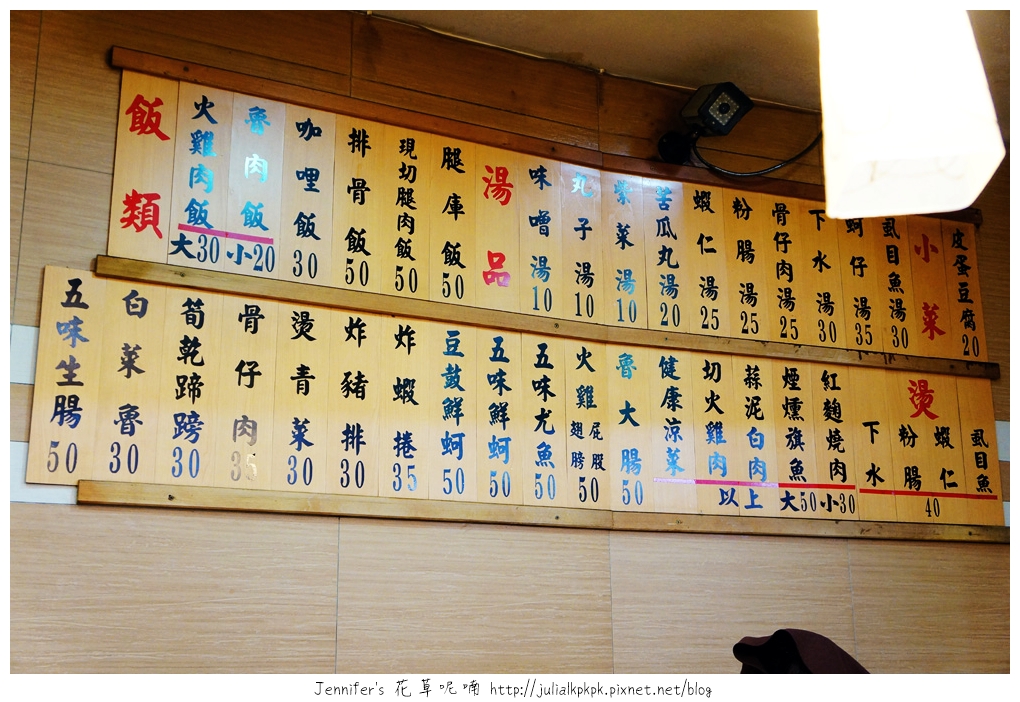 飯類
火雞肉飯
魯肉飯
大30 小20
咖哩飯 30
排骨飯 50
現切腿肉飯 50
腿庫飯 50
湯品
味噌湯 10
丸子湯 10
紫菜湯 10
苦瓜丸湯 20
蝦仁湯 25
粉腸湯 25
骨仔肉湯 25
下水湯 30
蚵仔湯 35
虱目魚湯 30
小菜
皮蛋豆腐 20
五味生腸 50
白菜魯 30
筍乾蹄膀 30
骨仔肉 35
燙青菜 30
炸豬排 30
炸蝦捲 35
豆鼓鮮蚵 50
五味鮮蚵 50
五味尤魚 50
火雞翅膀屁股 50
魯大腸 50
健康涼菜
切火雞肉
蒜泥白肉
煙燻旗魚
紅麴燒肉
以上 大50 小30
燙
下水
粉腸
蝦仁
虱目魚
40
Jennifer's 花草呢喃 http://julialkpkpk.pixnet.net/blog